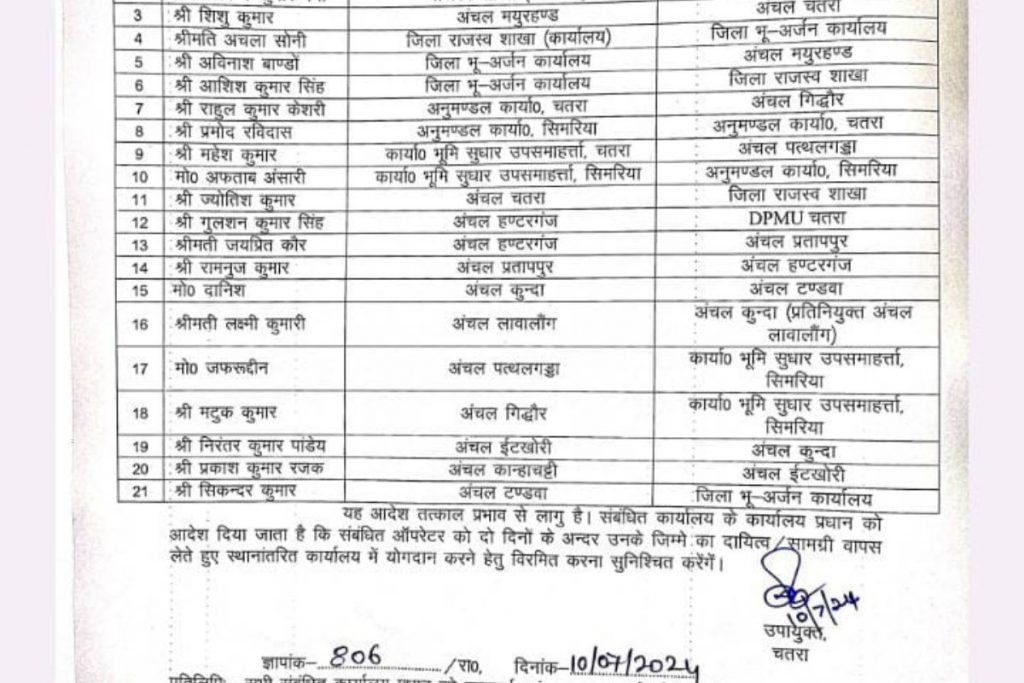 3 श्री शिशु कुमार अंचल मयुरहण्ड अंचल चतरा
4 श्रीमति अचला सोनी जिला राजस्व शाखा (कार्यालय) जिला भू–अर्जन कार्यालय
5 श्री अविनाश बाण्डों जिला भू–अर्जन कार्यालय अंचल मयुरहण्ड
6 श्री आशिश कुमार सिंह जिला भू–अर्जन कार्यालय जिला राजस्व शाखा
7 श्री राहुल कुमार केशरी अनुमण्डल कार्या0, चतरा अंचल गिद्धौर
8 श्री प्रमोद रविदास अनुमण्डल कार्या0, सिमरिया अनुमण्डल कार्या0, चतरा
9 श्री महेश कुमार कार्या0 भूमि सुधार उपसमाहर्त्ता, चतरा अंचल पत्थलगड्डा
10 मो0 अफताब अंसारी कार्या0 भूमि सुधार उपसमाहर्त्ता, सिमरिया अनुमण्डल कार्या0, सिमरिया
11 श्री ज्योतिश कुमार अंचल चतरा जिला राजस्व शाखा
12 श्री गुलशन कुमार सिंह अंचल हण्टरगंज DPMU चतरा
13 श्रीमती जयप्रित कौर अंचल हण्टरगंज अंचल प्रतापपुर
14 श्री रामनुज कुमार अंचल प्रतापपुर अंचल हण्टरगंज
15 मो0 दानिश अंचल कुन्दा अंचल टण्डवा
16 श्रीमती लक्ष्मी कुमारी अंचल लावालौंग अंचल कुन्दा (प्रतिनियुक्त अंचल
लावालौंग)
17 मो0 जफरूद्दीन अंचल पत्थलगड्डा कार्या0 भूमि सुधार उपसमाहर्त्ता,
सिमरिया
18 श्री मटुक कुमार अंचल गिद्धौर कार्या0 भूमि सुधार उपसमाहर्त्ता,
सिमरिया
19 श्री निरंतर कुमार पांडेय अंचल ईटखोरी अंचल कुन्दा
20 श्री प्रकाश कुमार रजक अंचल कान्हाचट्टी अंचल ईटखोरी
21 श्री सिकन्दर कुमार अंचल टण्डवा जिला भू–अर्जन कार्यालय
यह आदेश तत्काल प्रभाव से लागु है। संबंधित कार्यालय के कार्यालय प्रधान को
आदेश दिया जाता है कि संबंधित ऑपरेटर को दो दिनों के अन्दर उनके जिम्मे का दायित्व/सामग्री वापस
लेते हुए स्थानांतरित कार्यालय में योगदान करने हेतु विरमित करना सुनिश्चित करेंगें।
10/7/24
उपायुक्त,
चतरा
ज्ञापांक– 806 /रा0, दिनांक–10/07/2024